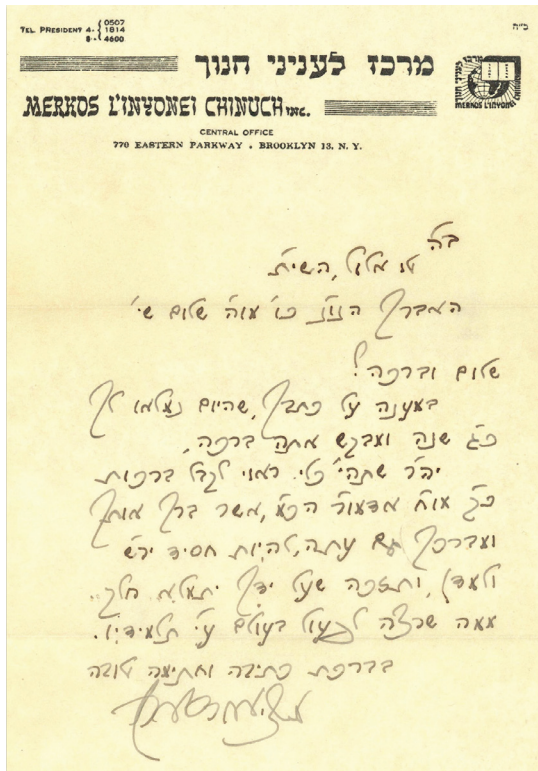 TEL. PRESIDENT 4-0507
1814
8-4600
ב״ה
מרכז לעניני חנוך
MERKOS L'INYONEI CHINUCH INC.
CENTRAL OFFICE
770 EASTERN PARKWAY • BROOKLYN 13, N. Y.
מרכז לעניני חנוך
MERKOS L'INYONEI CHINUCH
ב״ה
טו אלול, השי״ת
האברך הנו״נ כו׳ מוה׳ שלום שי׳
שלום וברכה!
במענה על כתבך, שהיום נמלאו לך
כ״ג שנה ומבקש אתה ברכה,
יה״ר שתהי׳ כלי ראוי לקבל ברכות
כ״ק מו״ח אדמו״ר הכ״מ, אשר ברך אותך
ומברכך גם עתה, להיות חסיד יר״ש
ולמדן, ותזכה שעל ידך יתמלא חלק
ממה שרצה לפעול בעולם ע״י תלמידיו.
בברכת כתיבה וחתימה טובה